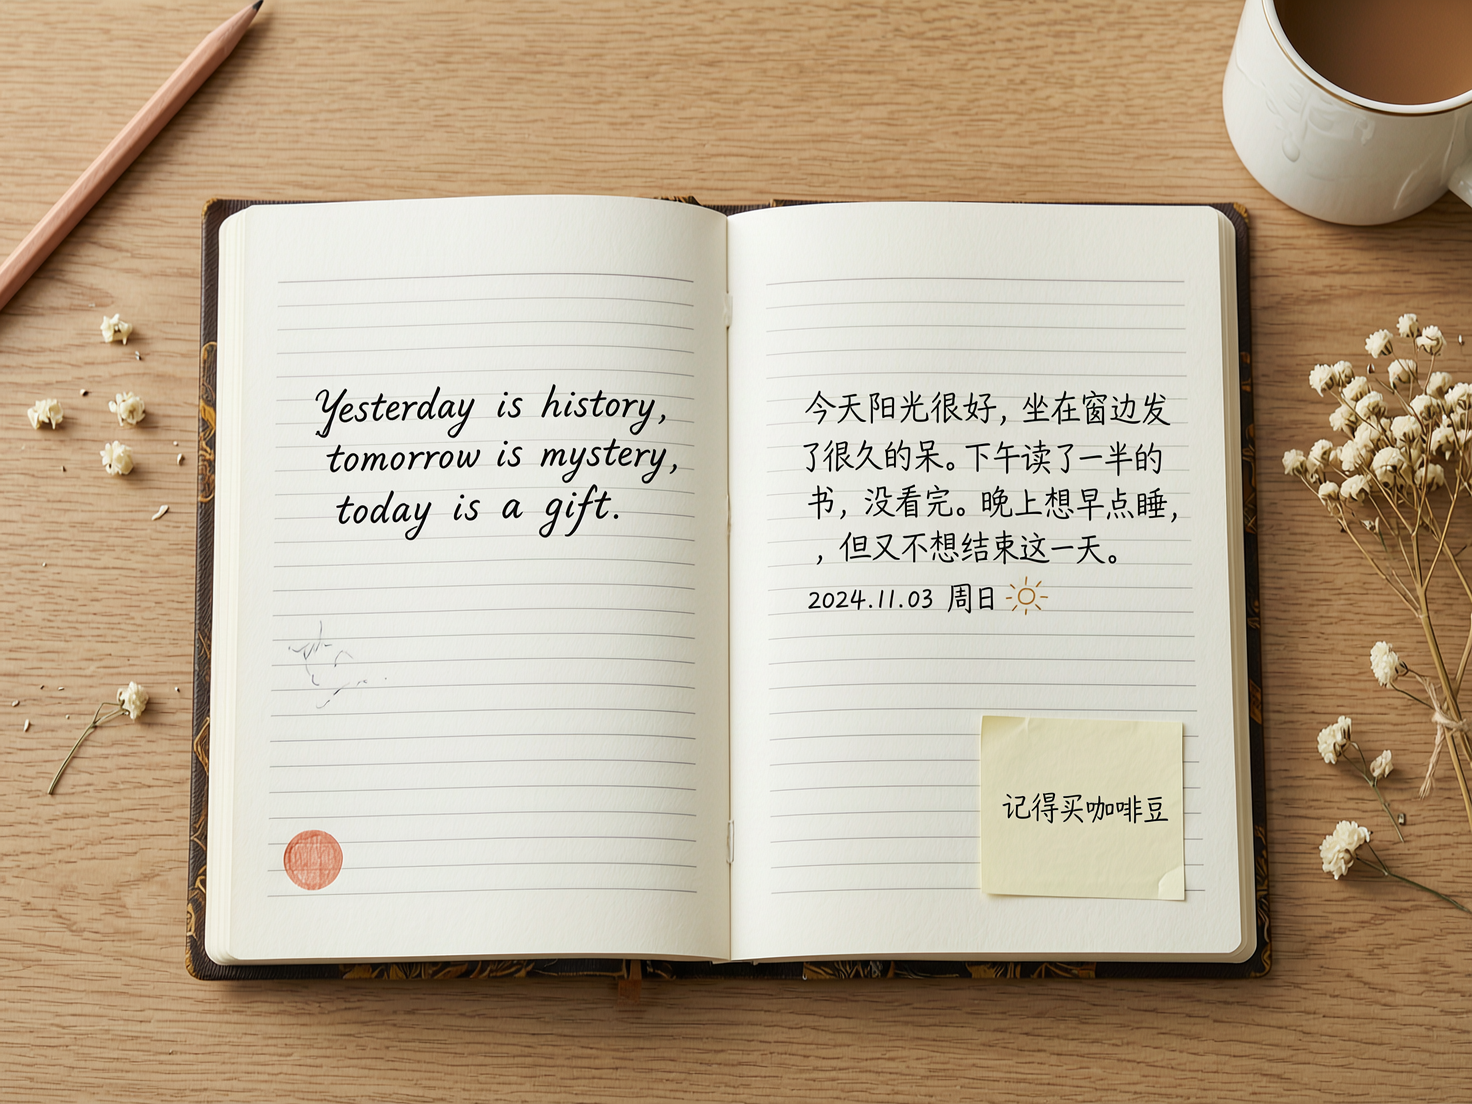 Yesterday is history,
tomorrow is mystery,
today is a gift.
今天阳光很好，坐在窗边发
了很久的呆。下午读了一半的
书，没看完。晚上想早点睡，
，但又不想结束这一天。
2024.11.03 周日
记得买咖啡豆